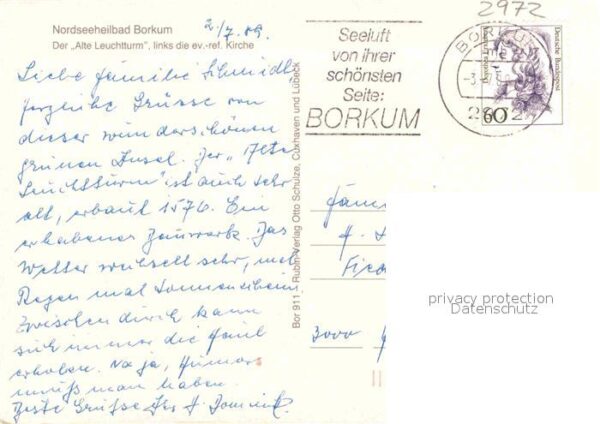 Nordseeheilbad Borkum
Der „Alte Leuchtturm", links die ev.-ref. Kirche
2/7.89.
Liebe Familie Schmidt
herzliche Grüsse von
dieser wunderschönen
grünen Insel. Der „Alte
Leuchtturm" ist auch sehr
alt, erbaut 1576. Ein
erhabenes Bauwerk. Das
Wetter wechselt sehr, mal
Regen mal Sonnenschein.
Zwischen durch kann
sich immer die Haut
erholen. Na ja, Humor
muß man haben.
Beste Grüße Ihr
Bor 911 Rubin-Verlag Otto Schulze, Cuxhaven und Lübeck
Seeluft
von ihrer
schönsten
Seite:
BORKUM
2972
BORKUM
2972
Deutsche Bundespost
60
3000
privacy protection
Datenschutz